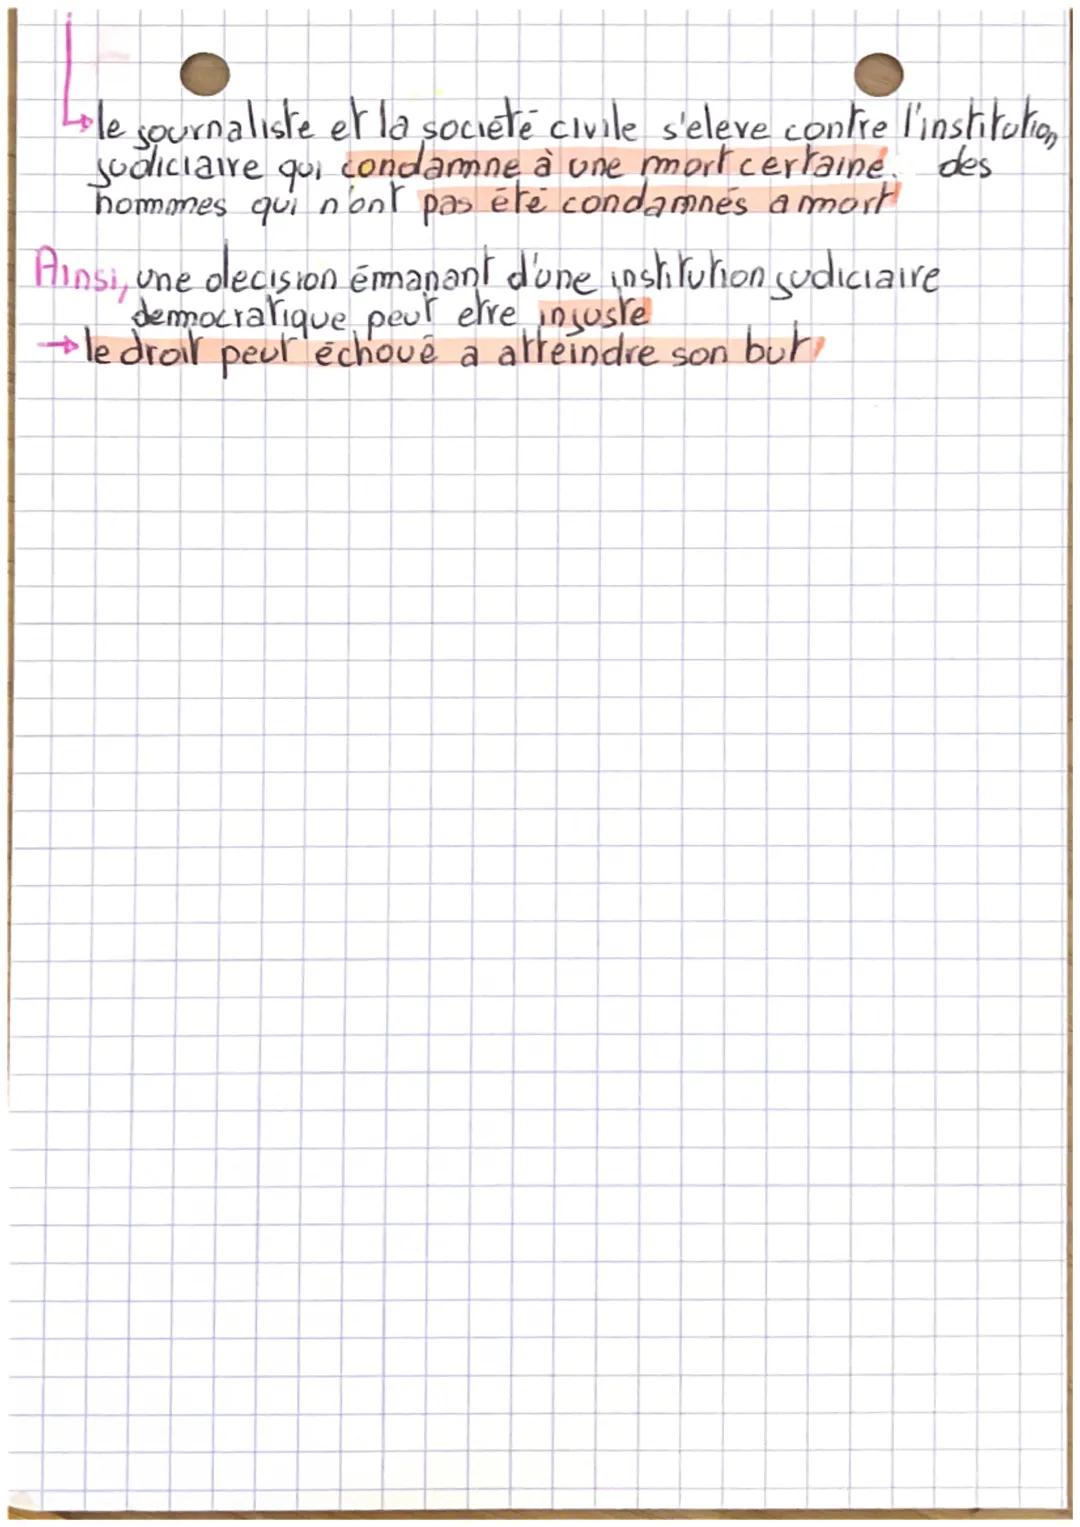 ↳ le journaliste et la société civile s'eleve contre l'institution
judiciaire qui condamne à une mort certaine. des
hommes qui n'ont pas été condamnés a mort
Ainsi, une decision émanant d'une institution judiciaire
democratique peut etre injuste
→ le droit peut échoué a atteindre son but